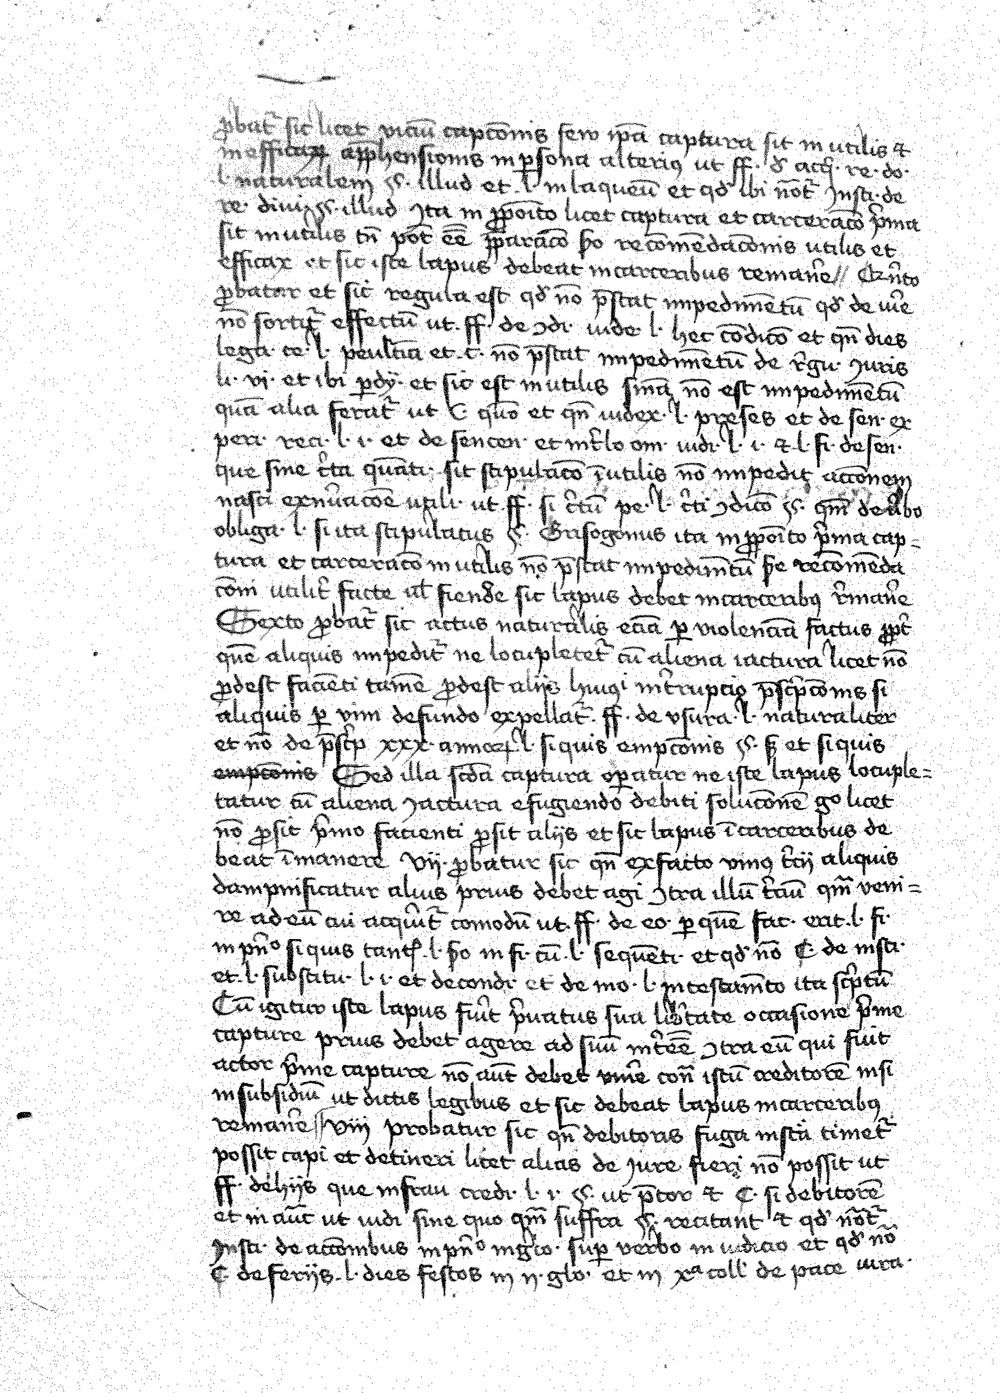 ꝓbat᷑ sic licet viciū capcōnis seu ip̄a captura sit inutilis et
inefficax app̄hensionis in ꝑsona alterius ut ff. de acq̄. re. do.
l. naturalem §. illud et l. in laqueū et qd̓ ibi nōt᷑ Insti. de
re. diui. §. illud Ita in ꝓpōito licet captura et carceracō p̓ma
sit inutilis tn̄ pōt eē p̄paracō ꝓ recōmendacōnis utilis et
efficax et sic iste lapus debeat in carceribus remanēe // Qnto
ꝓbatur et sic regula est qd̓ nō p̄stat impedimētū qd̓ de iure
nō sortit᷑ effectū ut ff. de ꝯdi. inde. l. hec cōdicō et qn̄ dies
lega. ce. l. penultīa et C. nō p̄stat impedimētū de r̓gu. Iuris
li. vi. et ibi ꝑ dy. et sic est inutilis sn̄ia nō est impedimētū
quā alia ferat᷑ ut C. quō et qn̄ iudex l. preses et de sen. ex
peri. reci. l. i. et de senten. et int̓lo. om. iudi. l. i. et l. fi. de sen.
que sine c̓ta quāti. sit stipulacō īutilis nō impedit accōnem
nasci ex nūacōe utili. ut ff. si c̓tū pe. l. c̓ti ꝯdicō §. qm̄ de ūbo
obliga. l. si ita stipulatus §. Grisogonus ita in ꝓpōito p̓ma cap-
tura et carceracō inutilis nō p̄stat impedimētū ꝓ recōmenda
cōni utilit᷑ facte ul̄ fiende sic lapus debet in carceribus r̓manēe
Sexto ꝓbat᷑ sic actus naturalis eciā ꝑ violenciā factus ꝓpt᷑
quē aliquis impedit᷑ ne locupletet᷑ cū aliena iactura licet nō
ꝓdest faciēti tamē ꝓdest aliis huiꝯi int̓rupcio p̄scpcōnis si
aliquis ꝑ vim de fundo expellat᷑. ff. de vsura. l. naturaliter
et nō de p̄scp̄ xxx. annoꝝ l. si quis empcōnis §. s̄ et si quis
empcōnis Sed illa scdā captura operatur ne iste lapus locuple-
tatur cū aliena Iactura efugiendo debiti solucōnē gº licet
nō ꝓsit p̓mo facienti ꝓsit aliis et sic lapus ī carceribus de
beat īmanere Vij. ꝓbatur sic qn̄ ex facto vnius t̓cii aliquis
dampnificatur alius prius debet agi ꝯtra illū t̓ciū qm̄ veni-
re ad eū cui acquirit᷑ comodū ut. ff. de eo. ꝑ quē fac. erit. l. fi.
in pn̄º si quis caut. l. ꝓ in fi. cū. l. sequēti. et qd̓ nō C. de insti.
et l. substitu. l. i. et de condi. et de mo. l. in testamēto ita scp̄tū
Cū igitur iste lapus fuit p̓uatus sua lib̓tate occasione p̓me
capture prius debet agere ad suū int̓eē ꝯtra eū qui fuit
actor p̓me capture nō aūt debet vīre con̄ istū creditorē nisi
in subsidiū ut dictis legibus et sic debeat lapus in carceribus
remanēe // Viij probatur sic qn̄ debitoris fuga instā timet᷑
possit capi et detineri licet alias de Iure fieri nō possit ut
ff. de hiis que in frau. credi. l. i. §. ut p̄tor et C. si debitorē
et in aūc ut iudi. sine quo qm̄ suffra. §. recitant et qd̓ nōt᷑
Insti. de accōnibus in pn̄º in glo. sup verbo in iudicio et qd̓ nō
C. de feriis. l. dies festos in ij. glo. et in xª coll̓ de pace iura.